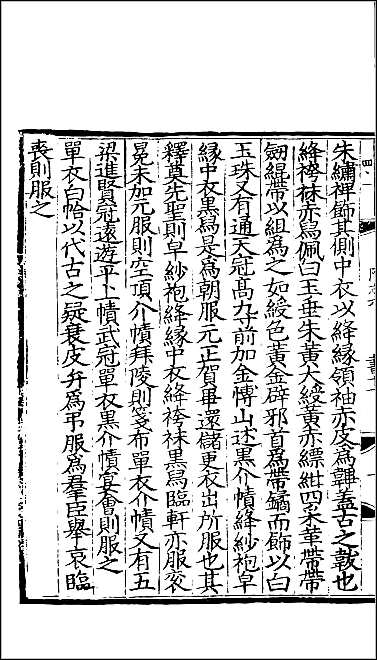 朱繡褌飾其側中衣以絳緣領袖赤皮爲韠蓋古之韍也
絳袴袜赤舄佩白玉垂朱黃大綬黃赤縹紺四采革帶帶
劔緄帶以組爲之如綬色黃金辟邪首爲帶鐍而飾以白
玉珠又有通天冠髙九寸前加金博山述黒介幘絳紗袍皁
緣中衣黒舄是爲朝服元正賀畢還儲更衣出所服也其
釋奠先聖則皁紗袍絳緣中衣絳袴袜黒舄臨軒亦服衮
冕未加元服則空頂介幘拜陵則箋布單衣介幘又有五
梁進賢冠遠遊平上幘武冠單衣黒介幘宴㑹則服之
單衣白帢以代古之疑衰皮弁爲弔服爲羣臣舉哀臨
喪則服之